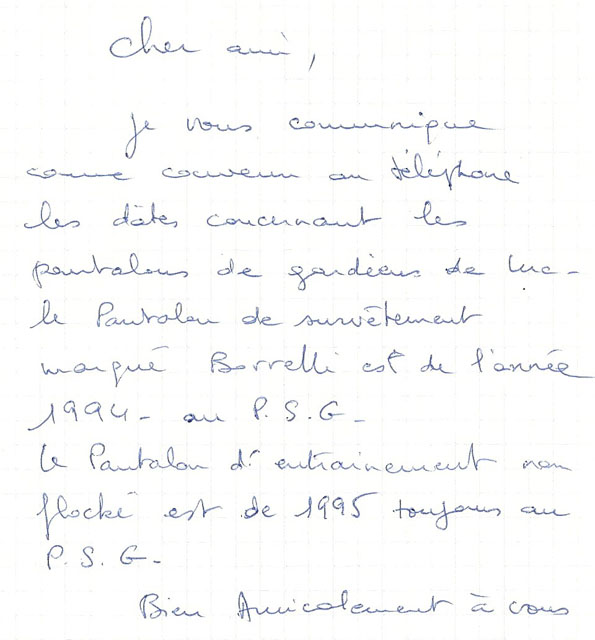 Cher ami,
je vous communique
comme convenu au téléphone
les dâtes concernant les
pantalons de gardiens de Luc -
le Pantalon de survêtement
marqué Borrelli est de l'année
1994 - au P. S. G -
Le Pantalon d'entrainement non
flocké est de 1995 toujours au
P. S. G -
Bien Amicalement à vous